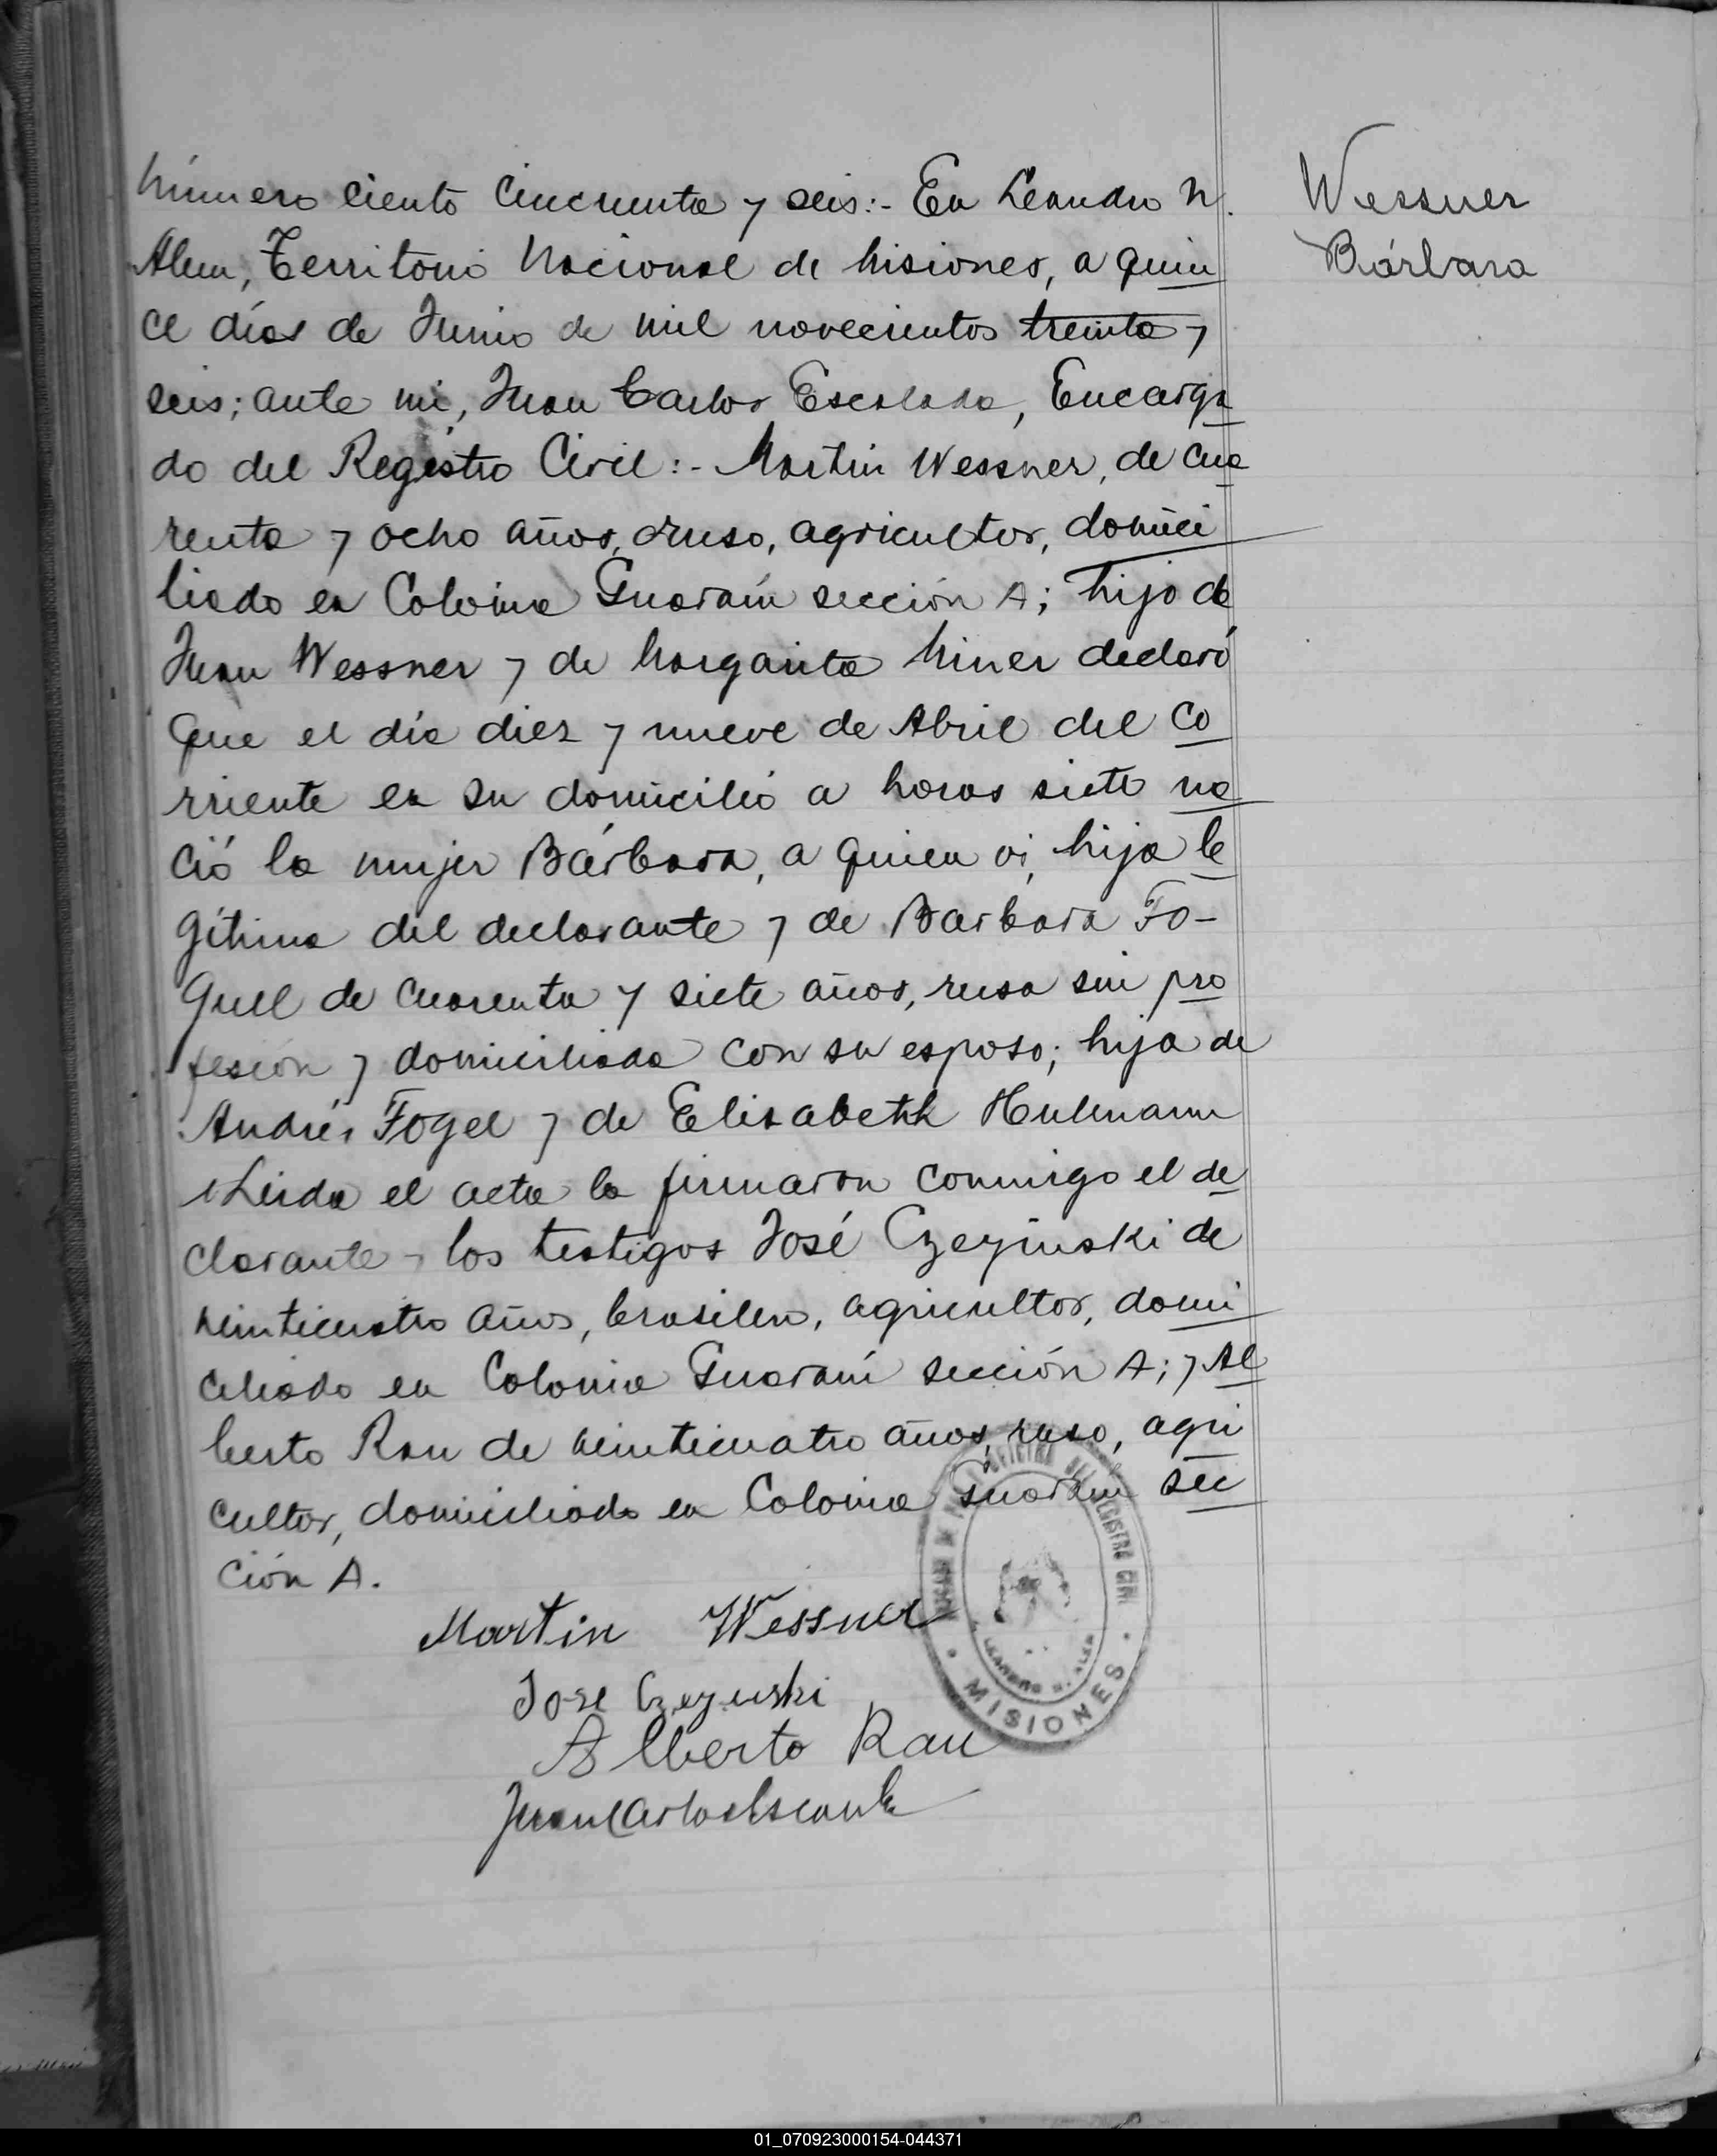 Número ciento cincuenta y seis:- En Leandro N.
Alem, Territorio Nacional de Misiones, a quin
ce días de Junio de mil novecientos treinta y
seis; ante mi, Juan Carlos Escalada, Encarga
do del Registro Civil:- Martin Wessner, de cua
renta y ocho años, ruso, agricultor, domici
liado en Colonia Guaraní sección A; hijo de
Juan Wessner y de Margarita Miner declaró
que el día diez y nueve de Abril del co
rriente en su domicilio a horas siete na
ció la mujer Bárbara, a quien vi, hija le
gitima del declarante y de Barbara Fo-
guel de cuarenta y siete años, rusa sin pro
fesión y domiciliada con su esposo; hija de
Andrés Fogel y de Elisabethh Hulmann
Leida el acta la firmaron conmigo el de
clarante y los testigos José Czeyinski de
veinticuatro años, brasilero, agricultor, domi
ciliado en Colonia Guaraní sección A; y Al
berto Rau de veinticuatro años, ruso, agri
cultor, domiciliado en Colonia Guaraní sec
ción A.
Wessner
Bárbara
Martin Wessner
Jose
Alberto Rau
Juan Carlos
OFICINA DEL REGISTRO CIVIL
LEANDRO N. ALEM
MISIONES
01_070923000154-044371